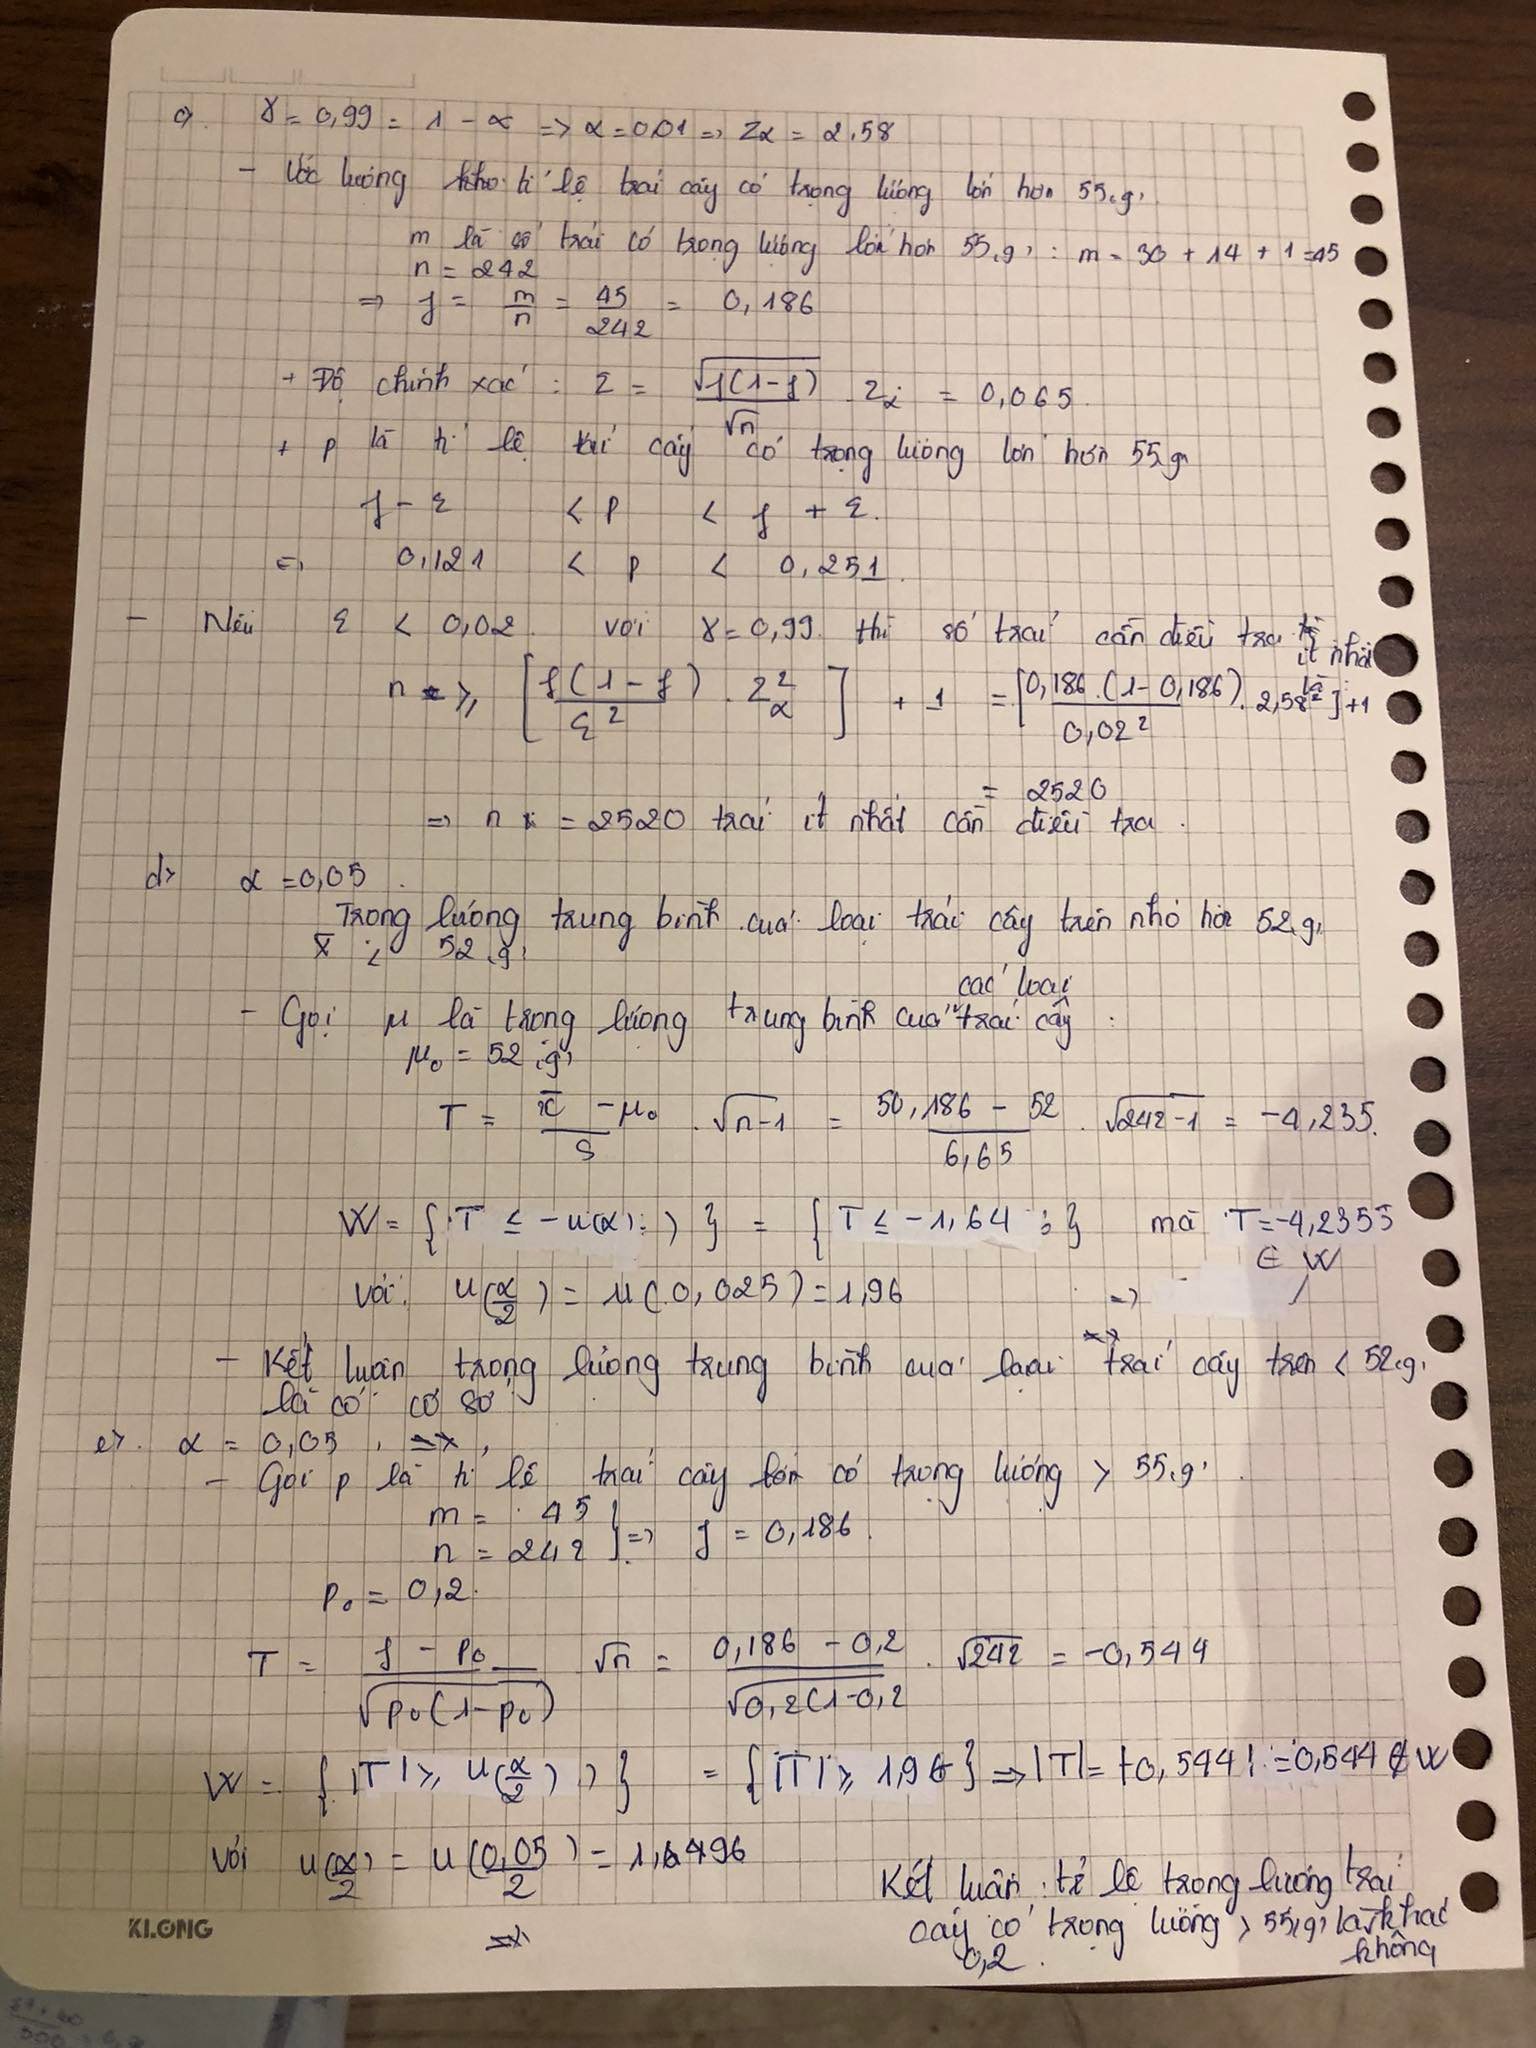 c>. γ = 0,99 = 1 - α => α = 0,01 => Zα = 2,58
- Ước lượng tỉ lệ trái cây có trọng lượng lớn hơn 55.g.
m là số trái có trọng lượng lớn hơn 55.g. : m = 30 + 14 + 1 = 45
n = 242
=> f = m/n = 45/242 = 0,186
+ Độ chính xác : Σ = √f(1-f) / √n . Zα = 0,065
+ p là tỉ lệ trái cây có trọng lượng lớn hơn 55.g
f - ε < p < f + ε.
=> 0,121 < p < 0,251.
- Nếu ε < 0,02 với γ = 0,99 thì số trái cần điều tra ít nhất là :
n ≥ [f(1-f)/ε² . Z²α] + 1 = [0,186.(1-0,186)/0,02² . 2,58²] + 1
= 2520
=> n = 2520 trái ít nhất cần điều tra .
d> α = 0,05 .
Trọng lượng trung bình của loại trái cây trên nhỏ hơn 52.g.
x̄ < 52.g.
- Gọi μ là trọng lượng trung bình của các loại trái cây :
μ₀ = 52.g.
T = (x̄ - μ₀)/S . √n-1 = (50,186 - 52)/6,65 . √242-1 = -4,235.
W = { T ≤ -u(α) ; ) } = { T ≤ -1,64 ; } mà T = -4,2355 ∈ W
với: u(α/2) = u(0,025) = 1,96 =>
- Kết luận trọng lượng trung bình của loại trái cây trên < 52.g.
là có cơ sở
e>. α = 0,05 . => ,
- Gọi p là tỉ lệ trái cây có trọng lượng > 55.g.
m = 45
n = 242 } => f = 0,186.
p₀ = 0,2.
T = (f - p₀)/√p₀(1-p₀) √n = (0,186 - 0,2)/√0,2(1-0,2 . √242 = -0,544
W = { |T| ≥ u(α/2) ) } = { |T| ≥ 1,96 } => |T| = |-0,544| = 0,544 ∉ W
với u(α/2) = u(0,05/2) =
Kết luận : tỉ lệ trọng lượng trái
cây có trọng lượng > 55.g. là không khác
0,2 .
=>
KLONG